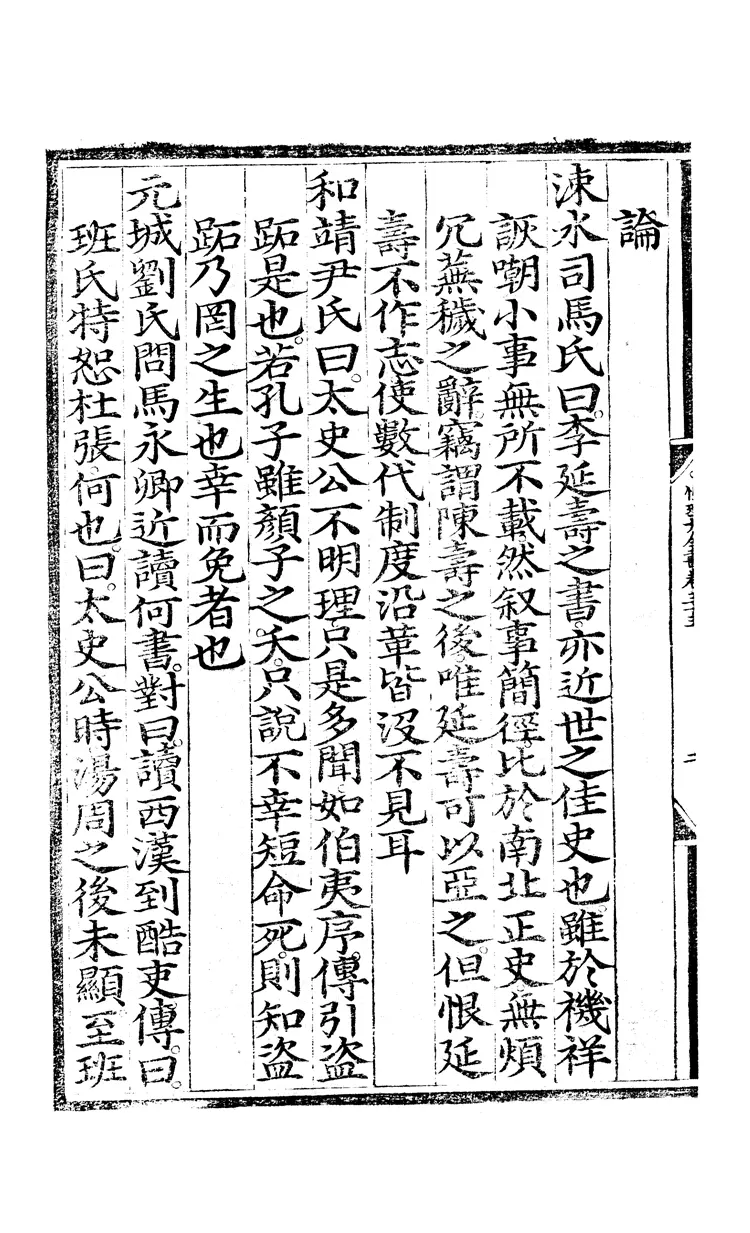 論
涑水司馬氏曰。李延壽之書。亦近世之佳史也。雖於禨祥
詼嘲小事無所不載。然叙事簡徑。比於南北正史。無煩
冗蕪穢之辭。竊謂陳壽之後。唯延壽可以亞之。但恨延
壽不作志。使數代制度沿革皆沒不見耳
和靖尹氏曰。太史公不明理。只是多聞。如伯夷序傳引盜
跖是也。若孔子雖顏子之夭。只說不幸短命死。則知盜
跖乃罔之生也幸而免者也
元城劉氏問馬永卿近讀何書。對曰。讀西漢到酷吏傳。曰。
班氏特恕杜張。何也。曰。太史公時湯周之後未顯至班